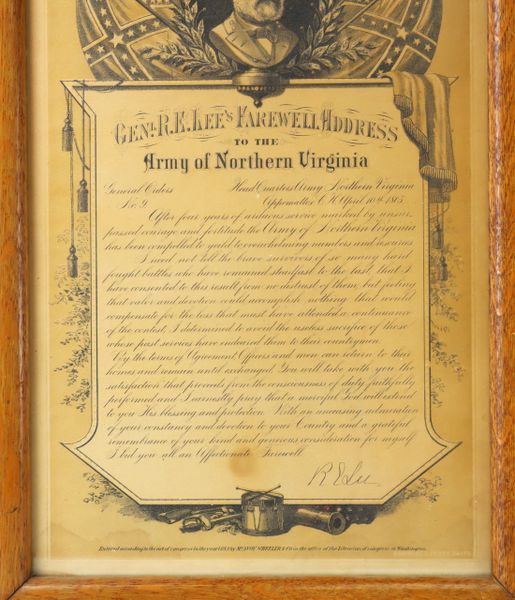 GENL. R.E. LEE'S FAREWELL ADDRESS
TO THE
Army of Northern Virginia
General Orders Head Quarters Army Northern Virginia
No. 9. Appomattox C.H. April 10th 1865
After four years of arduous service marked by unsur-
passed courage and fortitude the Army of Northern Virginia
has been compelled to yield to overwhelming numbers and resources
I need not tell the brave survivors of so many hard
fought battles who have remained steadfast to the last, that I
have consented to this result from no distrust of them, but feeling
that valor and devotion could accomplish nothing that would
compensate for the loss that must have attended a continuance
of the contest, I determined to avoid the useless sacrifice of those
whose past services have endeared them to their countrymen
By the terms of Agreement Officers and men can return to their
homes and remain until exchanged. You will take with you the
satisfaction that proceeds from the consciousness of duty faithfully
performed and I earnestly pray that a merciful God will extend
to you His blessing and protection. With an unceasing admiration
of your constancy and devotion to your Country and a grateful
remembrance of your kind and generous consideration for myself
I bid you all an Affectionate Farewell
R E Lee
Entered according to the act of congress in the year by WHEELER & CO in the office of the Librarian of congress at Washington.